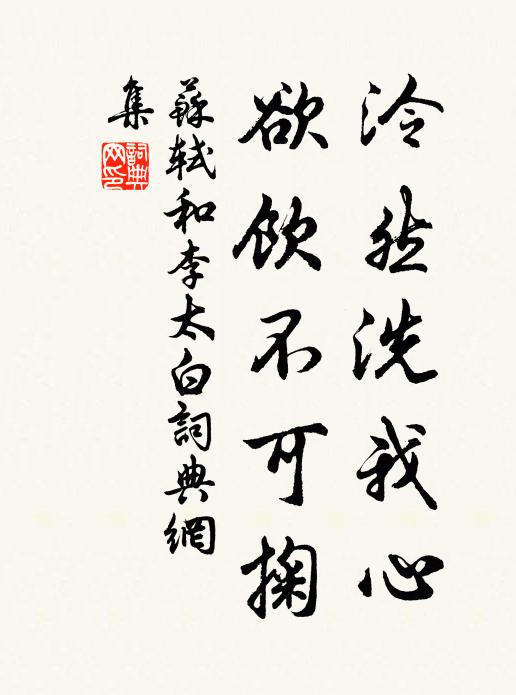 泠然洗我心
欲飲不可掬
蘇軾和李太白詞典網
集
詞典
网印